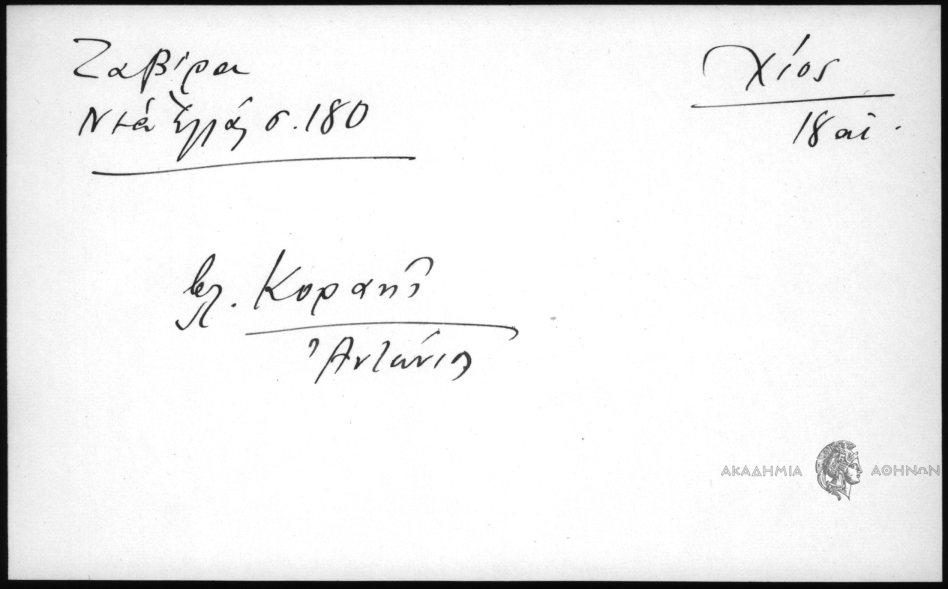 Ζαβίρα
Νέα Ἑλλάς σ. 180
Χίος
18 αἰ.
βλ. Κοραῆς
Ἀντώνιος
ΑΚΑΔΗΜΙΑ ΑΘΗΝΩΝ